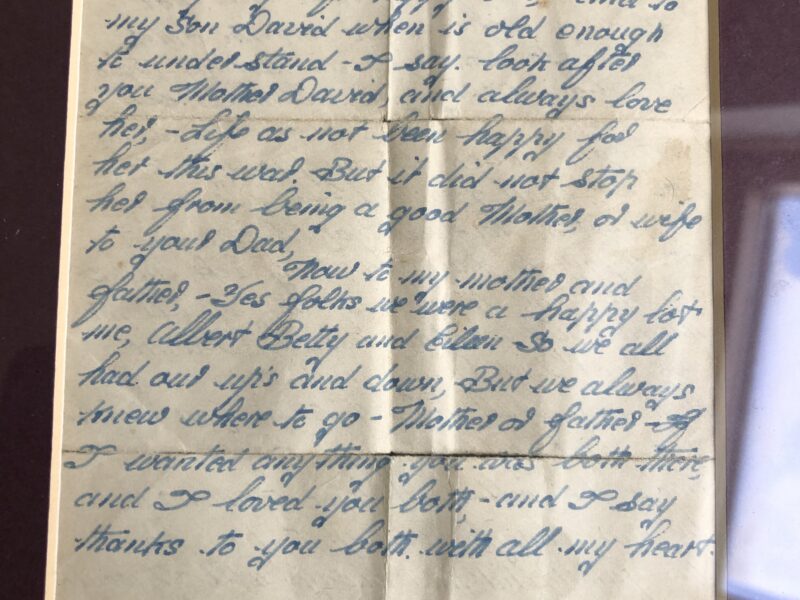 and to
my Son David when is old enough
to under stand - I say. look after
you Mother David, and always love
her, - Life as not been happy for
her this war. But it did not stop
her from being a good Mother, or wife
to your Dad,
Now to my mother and
father, - Yes folks we were a happy lot
me, Albert Betty and Eileen So we all
had our up's and down, But we always
knew where to go - Mother or father - If
I wanted any thing you was both there,
and I loved you both, - and I say
thanks to you both. with all my heart.